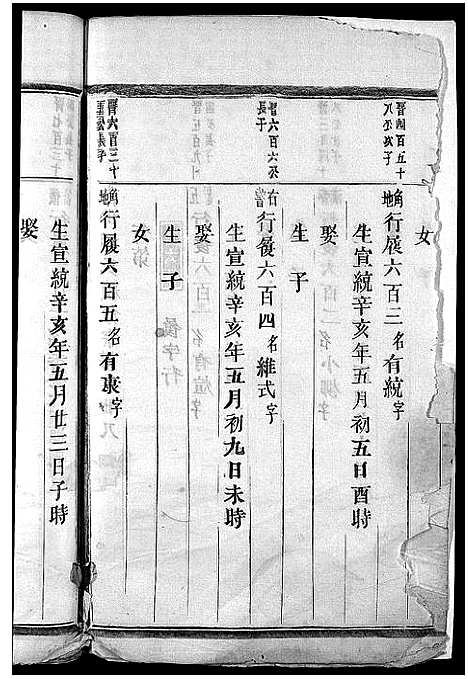 女
晋四百五十
八公次子
角地行履六百三名有統字
生宣統辛亥年五月初五日酉時
娶
生子
晋六百六公
長子
行履六百四名維式字
生宣統辛亥年五月初九日未時
娶
生子
女
晋六百三十
長子
角地行履六百五名有康字
生宣統辛亥年五月廿三日子時
娶